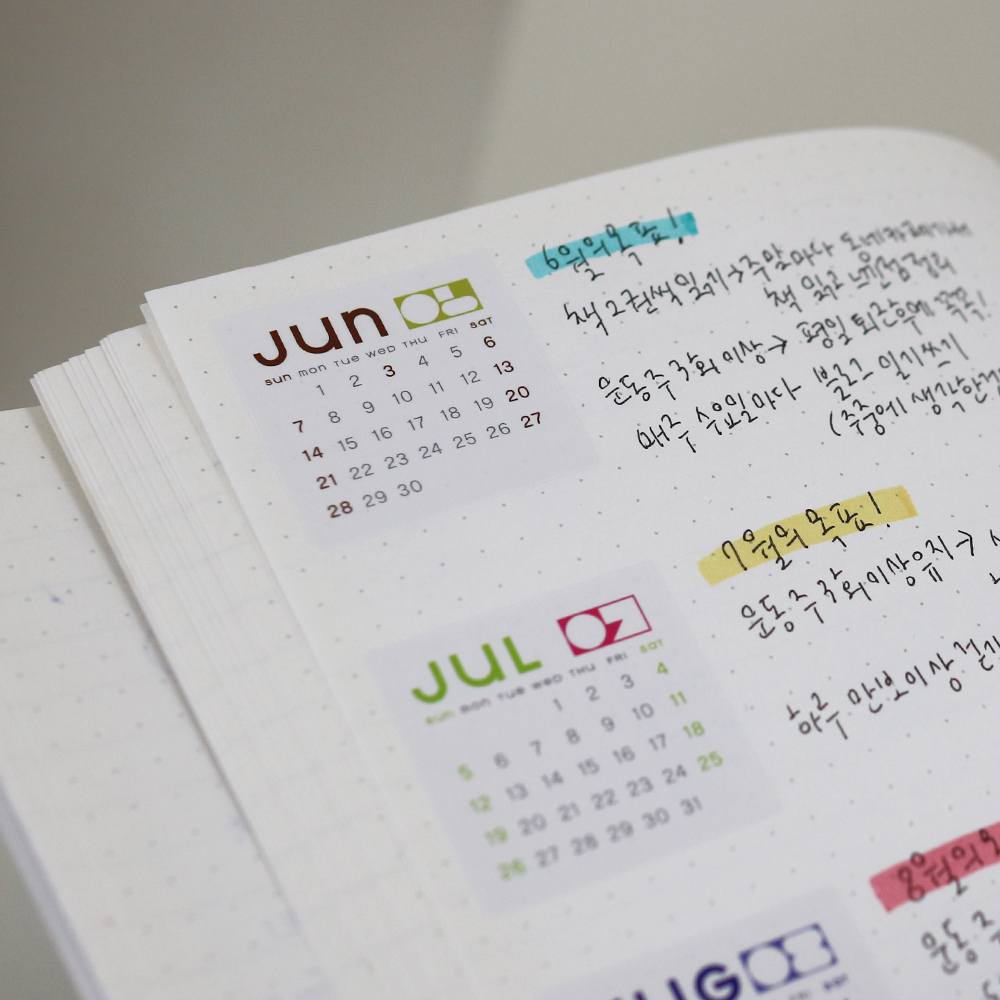 Jun 06
sun mon TUE WED THU FRI SAT
1 2 3 4 5 6
7 8 9 10 11 12 13
14 15 16 17 18 19 20
21 22 23 24 25 26 27
28 29 30
6월의 목표!
책 2권씩 읽기→주말마다
책 읽고 정리
운동 주 3회 이상→ 평일 퇴근후에 꼭꼭!
매주 수요일마다 블로그 일기쓰기
(주중에 생각
JUL 07
sun mon TUE WED THU FRI SAT
1 2 3 4
5 6 7 8 9 10 11
12 13 14 15 16 17 18
19 20 21 22 23 24 25
26 27 28 29 30 31
7월의 목표!
운동 주 3회 이상 유지→
하루 만보 이상 걷기
UG 08
8월의
운동